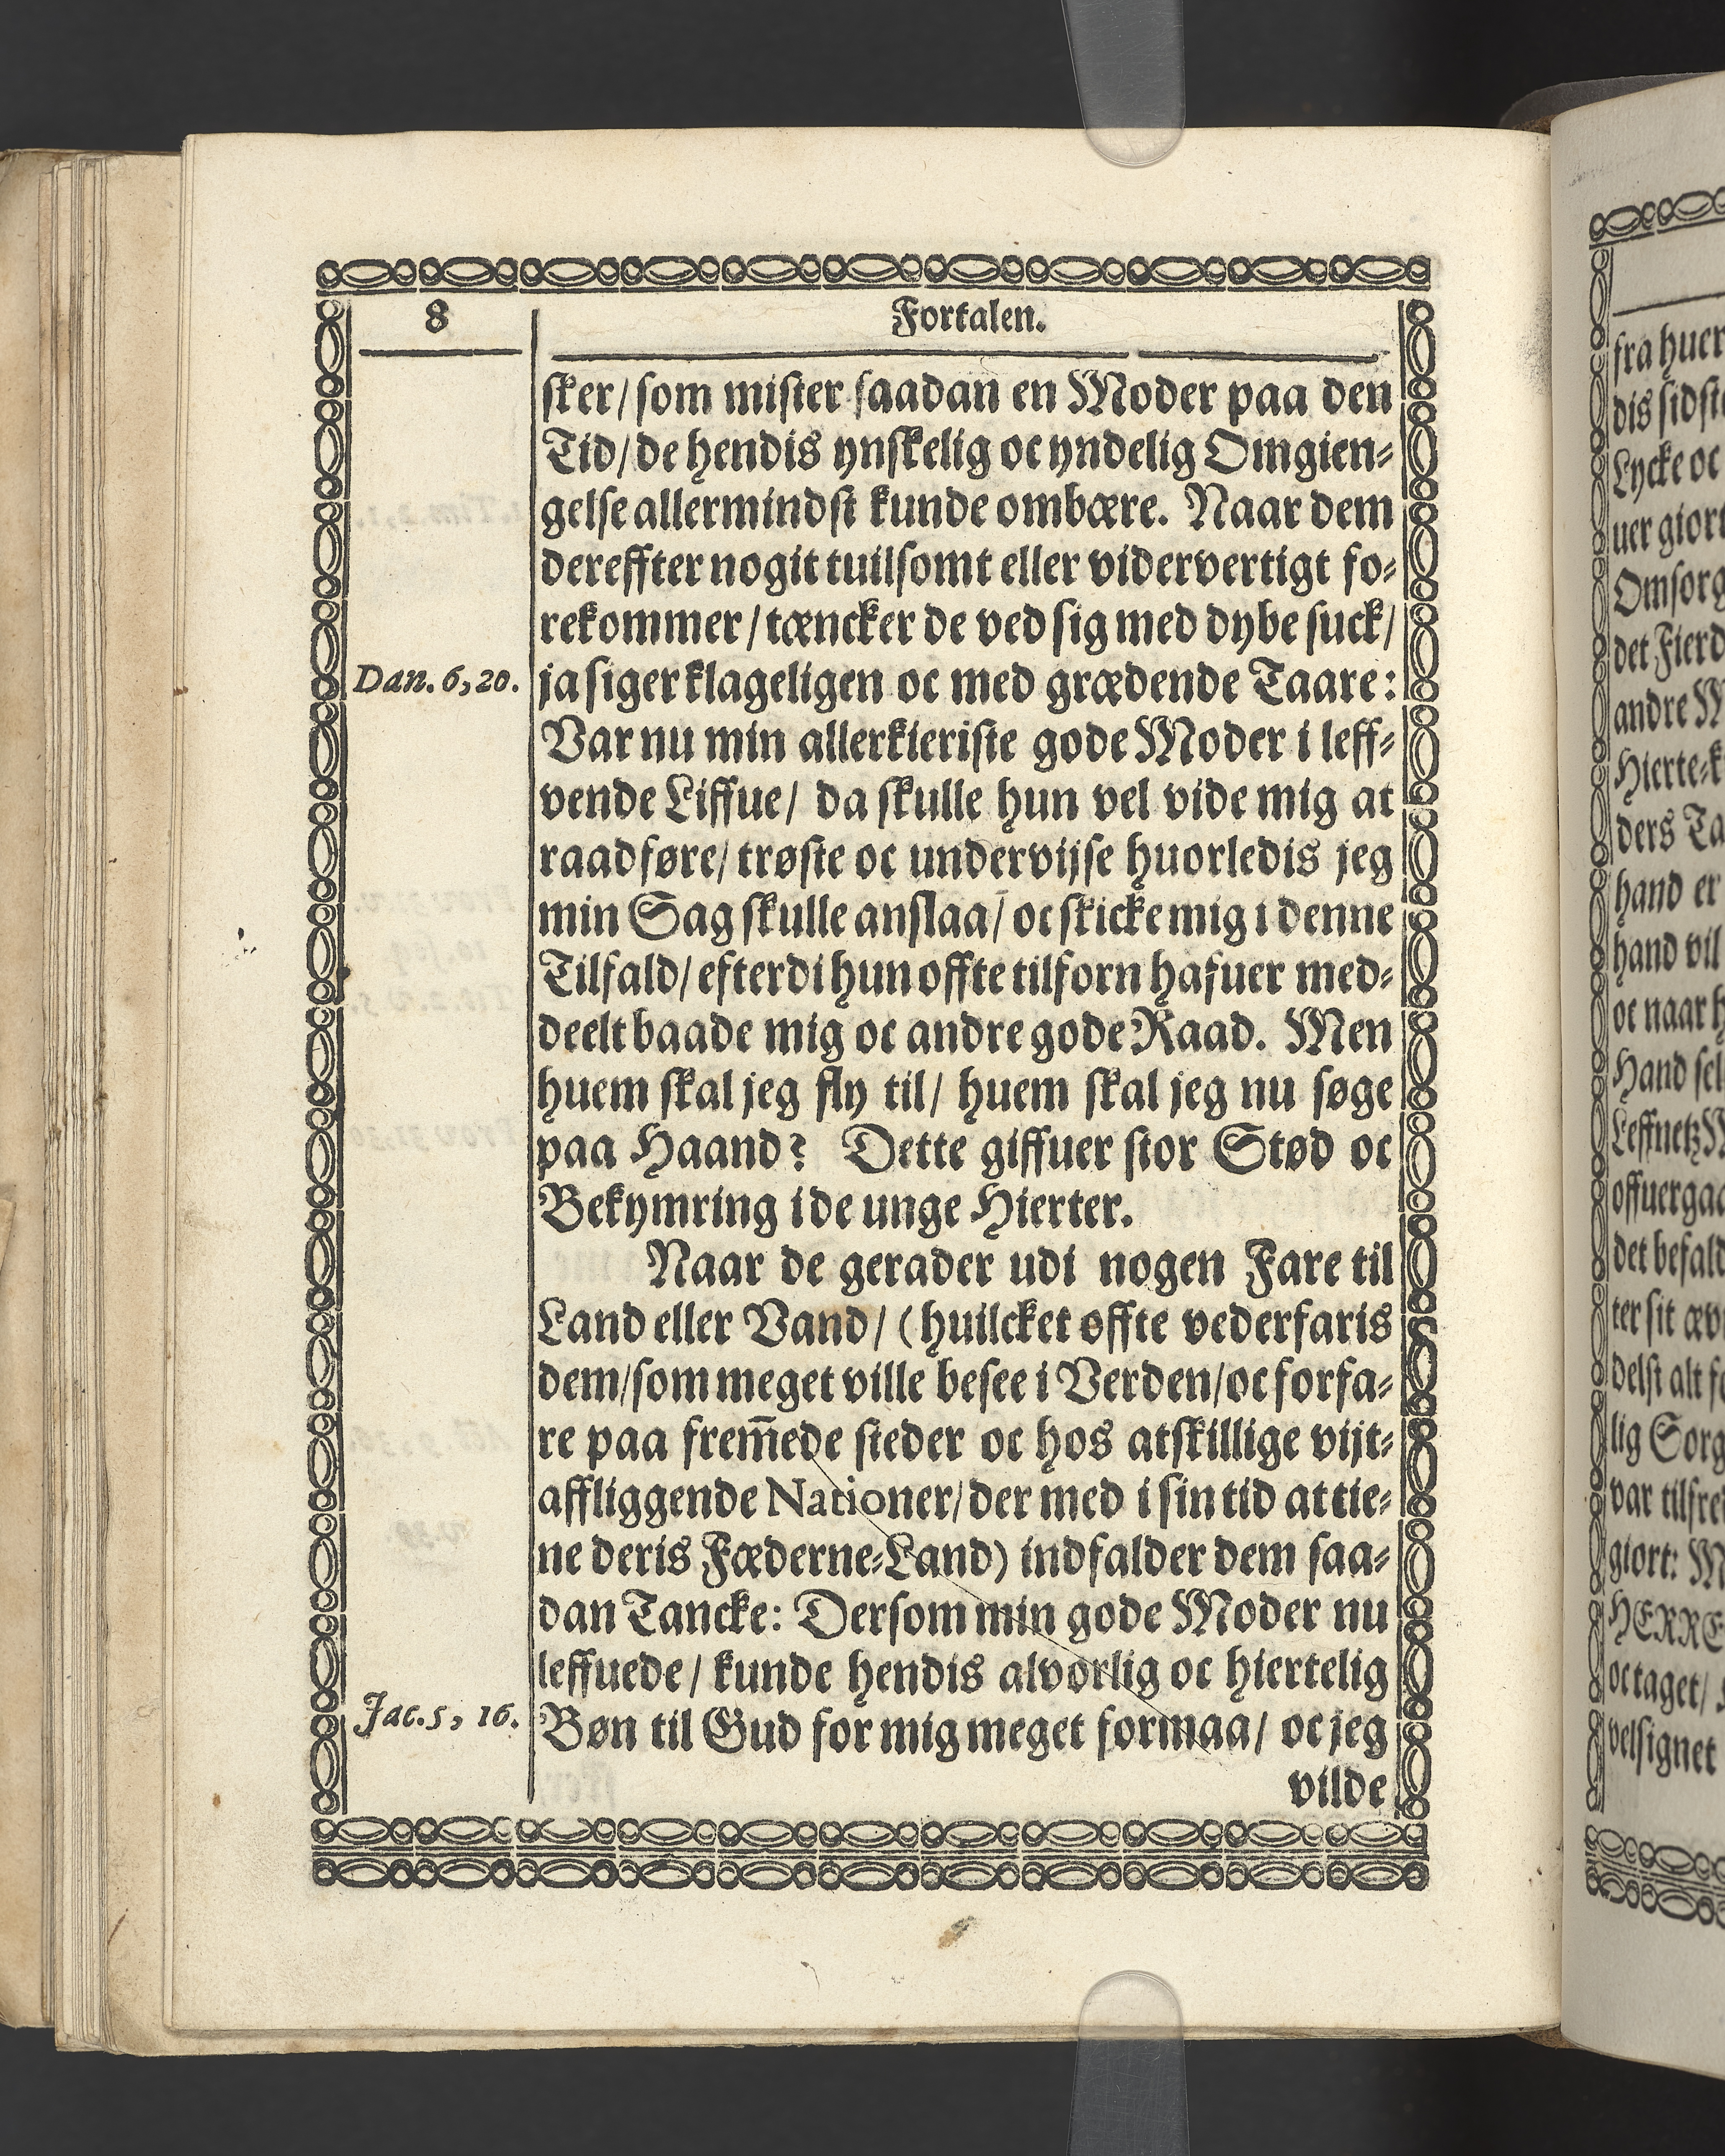 8
Fortalen.
sker/ som mister saadan en Moder paa den
Tid/ de hendis ynskelig oc yndelig Omgien-
gelse allermindst kunde ombære. Naar dem
dereffter nogit tuilsomt eller vidervertigt fo-
rekommer/ tæncker de ved sig med dybe suck/
Dan. 6, 20.
ja siger klageligen oc med grædende Taare:
Var nu min allerkieriste gode Moder i leff-
vende Liffue/ da skulle hun vel vide mig at
raadføre/ trøste oc undervijse huorledis jeg
min Sag skulle anslaa/ oc skicke mig i denne
Tilfald/ efterdi hun offte tilforn hafuer med-
deelt baade mig oc andre gode Raad. Men
huem skal jeg fly til/ huem skal jeg nu søge
paa Haand? Dette giffuer stor Stød oc
Bekymring i de unge Hierter.
Naar de gerader udi nogen Fare til
Land eller Vand/ (huilcket offte vederfaris
dem/ som meget ville besee i Verden/ oc forfa-
re paa frem̅ede steder oc hos atskillige vijt-
affliggende Nationer/ der med i sin tid at tie-
ne deris Fæderne-Land) indfalder dem saa-
dan Tancke: Dersom min gode Moder nu
leffuede/ kunde hendis alvorlig oc hiertelig
Jac. 5, 16.
Bøn til Gud for mig meget formaa/ oc jeg
vilde
fra huer
dis sidst
Lycke oc
uer giort
Omsorg
det Fierd
andre M
Hierte-k
ders Ta
hand er
hand vil
oc naar h
Hand sel
Leffnetz M
offuergaa
det befald
ter sit æv
delst alt f
lig Sorg
var tilfre
giort: M
HERRE
oc taget/
velsignet